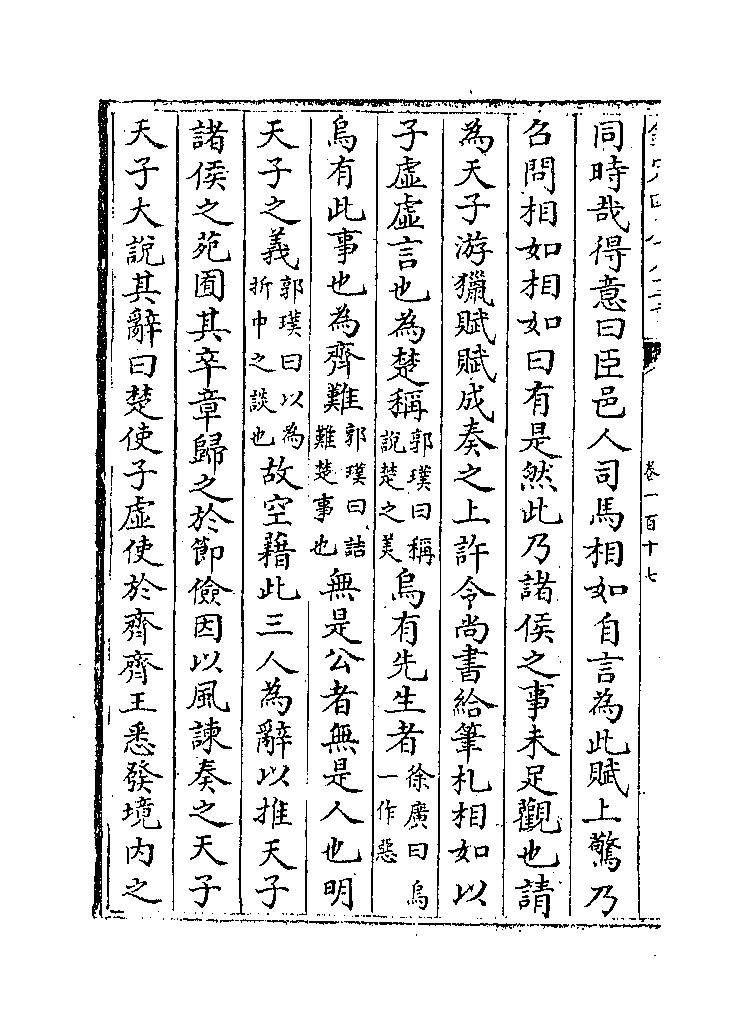 卷一百十七
同時哉得意曰臣邑人司馬相如自言為此賦上驚乃
召問相如相如曰有是然此乃諸侯之事未足觀也請
為天子游獵賦賦成奏之上許令尚書給筆札相如以
子虛虛言也為楚稱郭璞曰稱說楚之美烏有先生者徐廣曰烏一作惡
烏有此事也為齊難郭璞曰詰難楚事也無是公者無是人也明
天子之義郭璞曰以為折中之談也故空藉此三人為辭以推天子
諸侯之苑囿其卒章歸之於節儉因以風諫奏之天子
天子大說其辭曰楚使子虛使於齊齊王悉發境內之